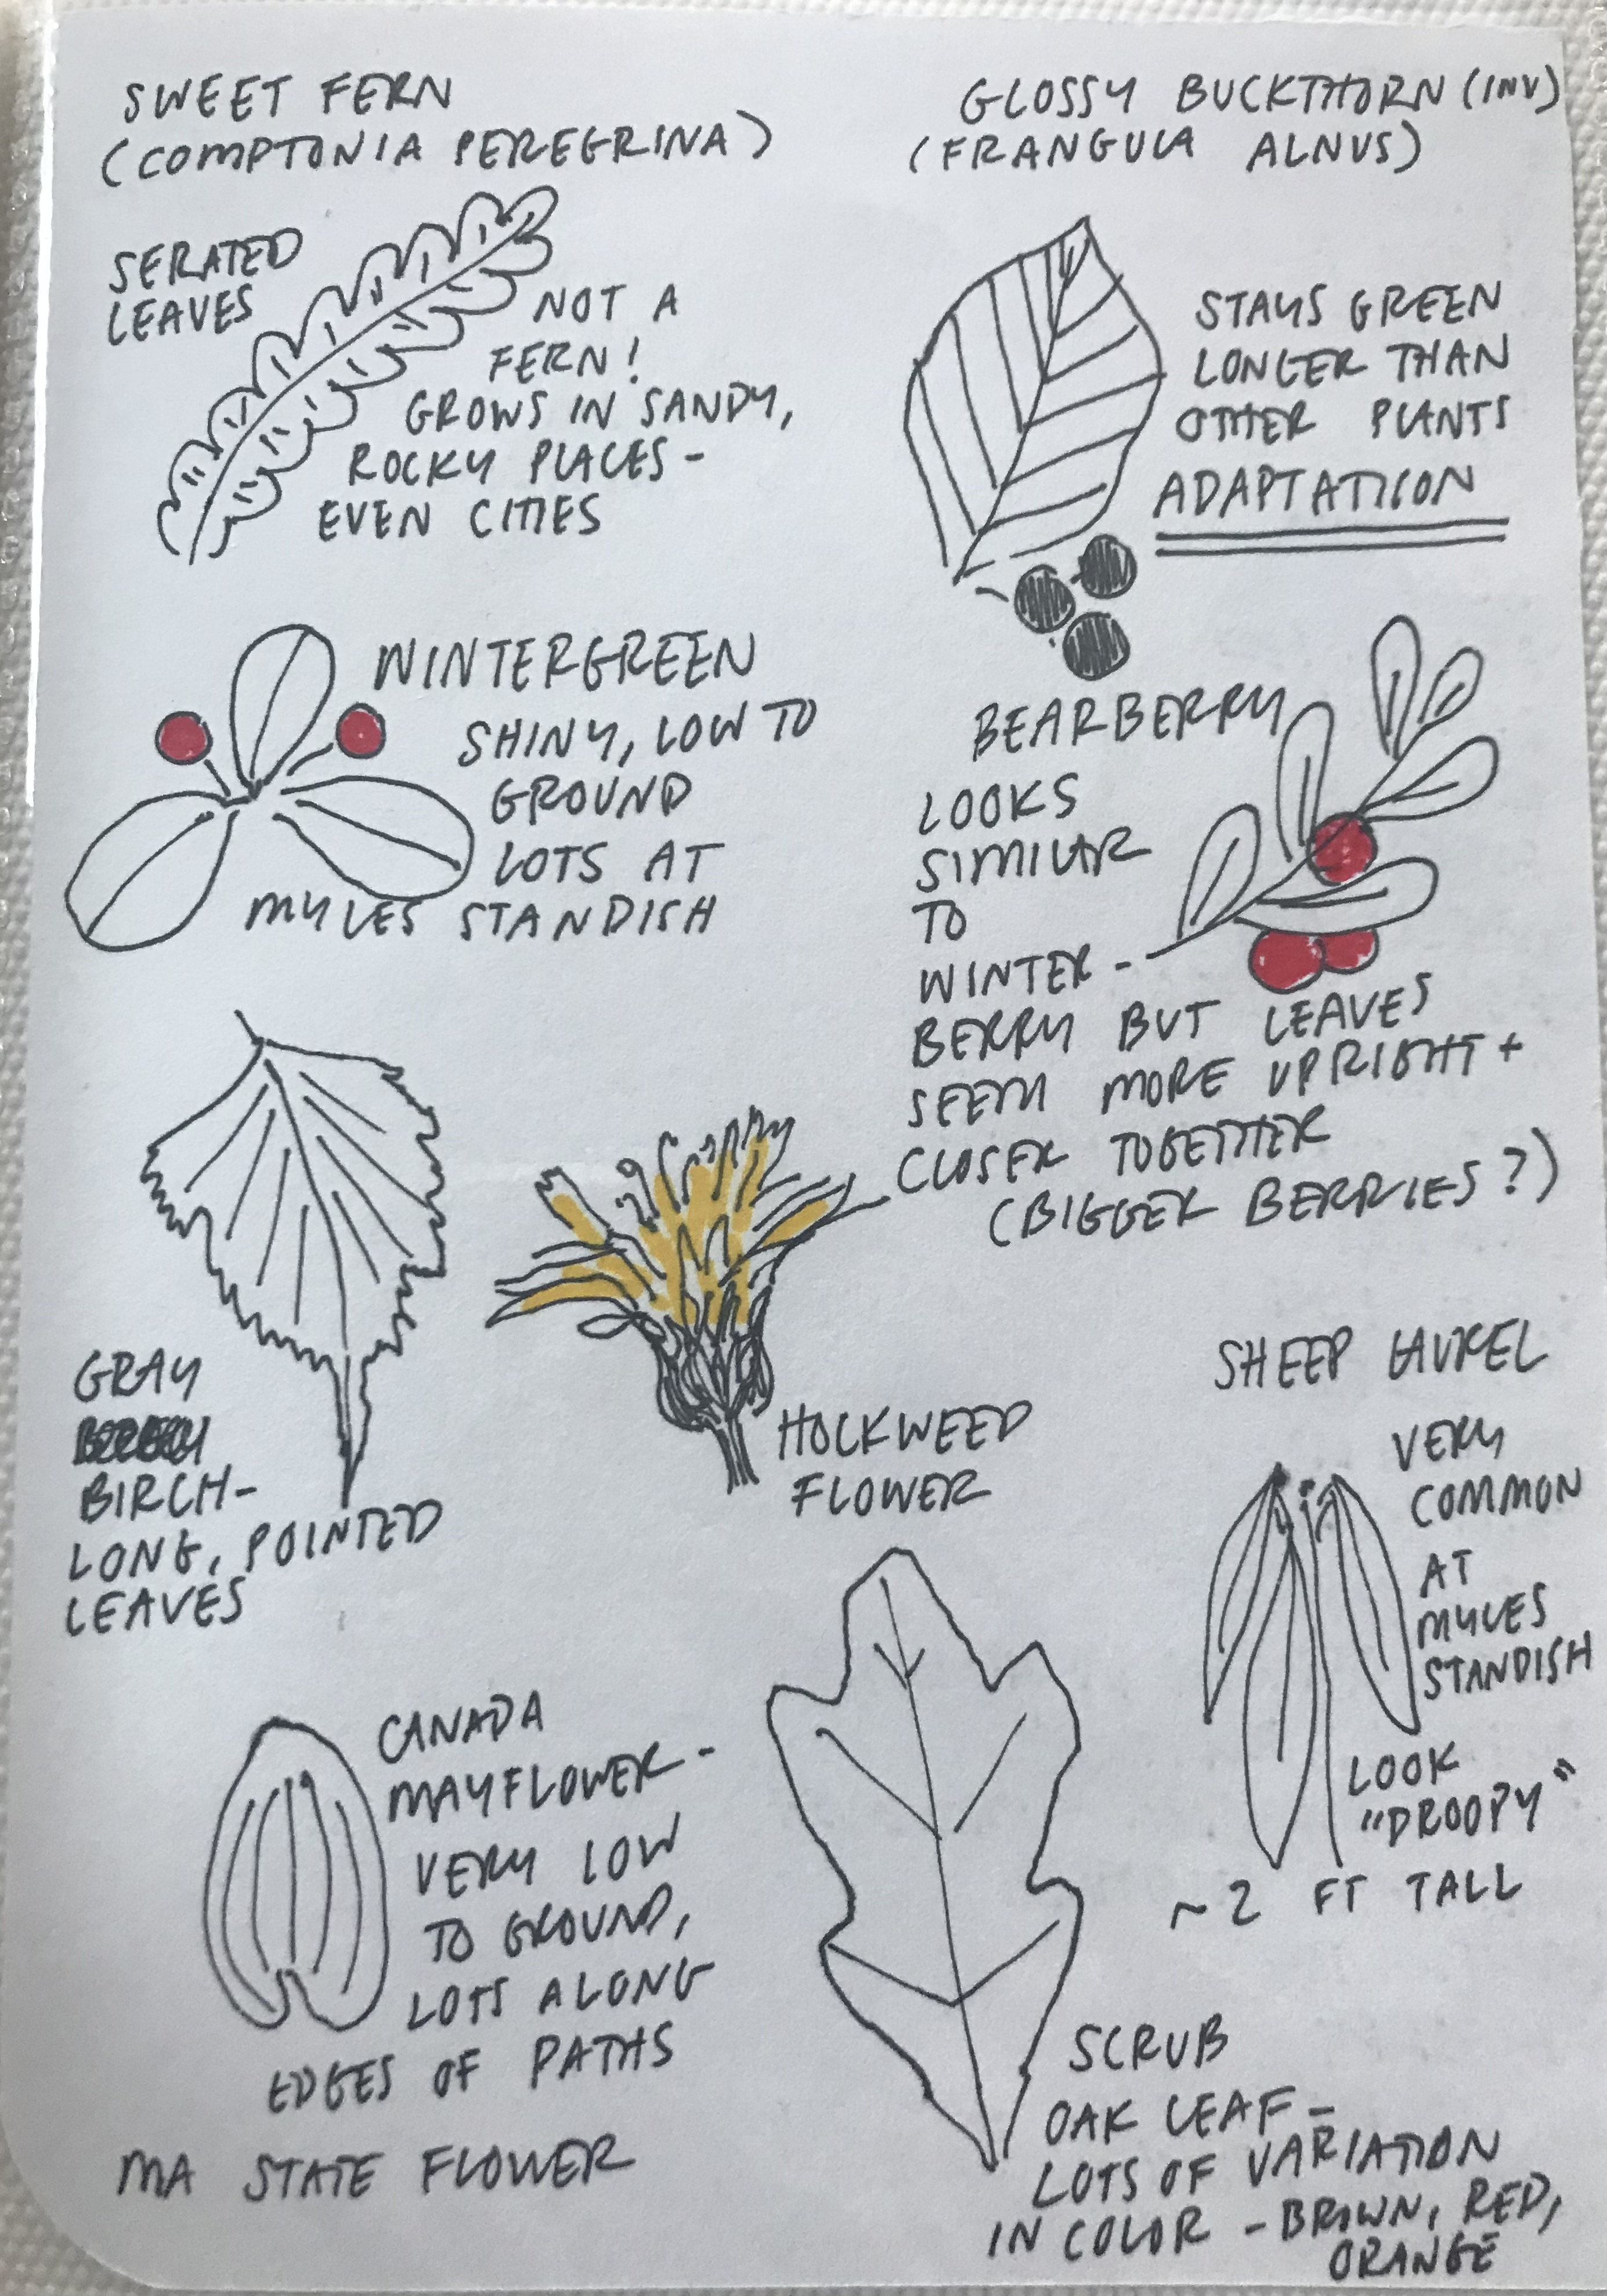 SWEET FERN
(COMPTONIA PEREGRINA)
SERATED
LEAVES
NOT A
FERN!
GROWS IN SANDY,
ROCKY PLACES -
EVEN CITIES
GLOSSY BUCKTHORN (INV)
(FRANGULA ALNUS)
STAYS GREEN
LONGER THAN
OTHER PLANTS
ADAPTATION
WINTERGREEN
SHINY, LOW TO
GROUND
LOTS AT
MYLES STANDISH
BEARBERRY
LOOKS
SIMILAR
TO
WINTER -
BERRY BUT LEAVES
SEEM MORE UPRIGHT +
CLOSER TOGETHER
(BIGGER BERRIES?)
GRAY
BIRCH -
LONG, POINTED
LEAVES
HOCKWEED
FLOWER
SHEEP LAUREL
VERY
COMMON
AT
MYLES
STANDISH
LOOK
"DROOPY"
~2 FT TALL
CANADA
MAYFLOWER -
VERY LOW
TO GROUND,
LOTS ALONG
EDGES OF PATHS
MA STATE FLOWER
SCRUB
OAK LEAF -
LOTS OF VARIATION
IN COLOR - BROWN, RED,
ORANGE